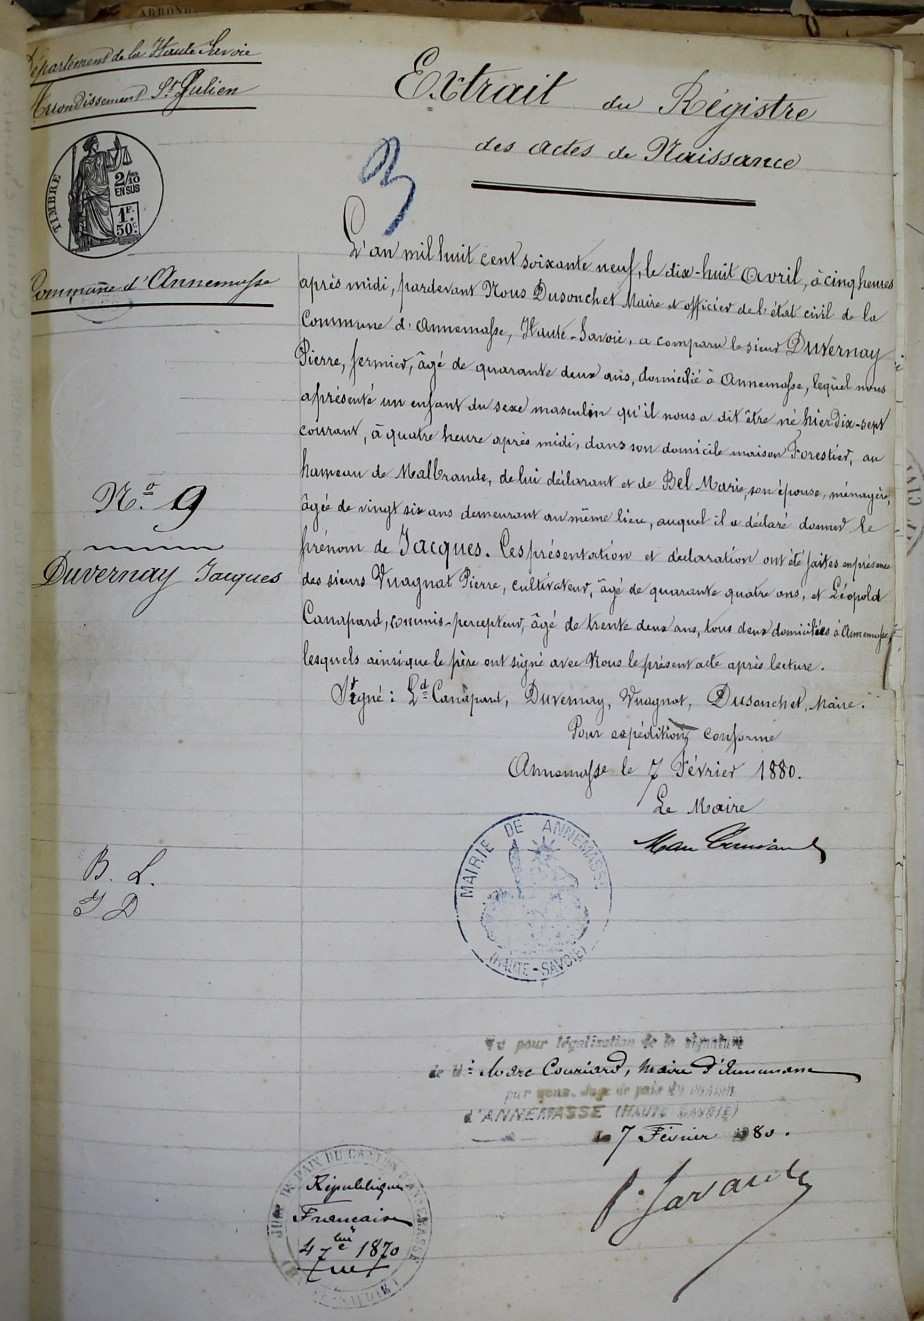 Département de la Haute Savoie
Arrondissement St Julien
Extrait du Régistre
des actes de Naissance
3
TIMBRE
2/10
EN SUS
1F.
50c
Commune d'Annemasse
L'an mil huit cent soixante neuf, le dix-huit Avril, à cinq heures
après midi, pardevant Nous Dusonchet Maire et officier de l'état civil de la
Commune d'Annemasse, Haute-Savoie, a comparu le sieur Duvernay
Pierre, fermier, âgé de quarante deux ans, domicilié à Annemasse, lequel nous
a présenté un enfant du sexe masculin qu'il nous a dit être né hier dix-sept
courant, à quatre heure après midi, dans son domicile maison Forestier, au
hameau de Malbrande, de lui déclarant et de Bel Marie, son épouse, ménagère,
âgée de vingt six ans demeurant au même lieu, auquel il a déclaré donner le
prénom de Jacques. Ces présentation et déclaration ont été faites en présence
des sieurs Vuagnat Pierre, cultivateur, âgé de quarante quatre ans, et Léopold
Canapard, commis-percepteur, âgé de trente deux ans, tous deux domiciliés à Annemasse,
lesquels ainsi que le père ont signé avec Nous le présent acte après lecture.
No. 9
Duvernay Jacques
Signé : Ld Canapard, Duvernay, Vuagnat, Dusonchet, Maire.
Pour expédition conforme
Annemasse le 7 Février 1880.
Le Maire
MAIRIE DE ANNEMASSE
(HAUTE-SAVOIE)
B. L.
J D
Vu pour légalisation de la signature
de Mr Marc Couriard, Maire d'Annemasse
par nous, Juge de paix du canton
d'ANNEMASSE (HAUTE SAVOIE)
Le 7 Février 1880.
JUGE DE PAIX DU CANTON D'ANNEMASSE
République
Française
4 7bre 1870